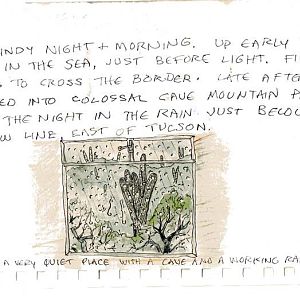 INDY NIGHT + MORNING. UP EARLY
IN THE SEA, JUST BEFORE LIGHT. FI
. TO CROSS THE BORDER. LATE AFTER
ED INTO COLOSSAL CAVE MOUNTAIN P
THE NIGHT IN THE RAIN JUST BELO
W LINE, EAST OF TUCSON.
A VERY QUIET PLACE WITH A CAVE AND A WORKING RA